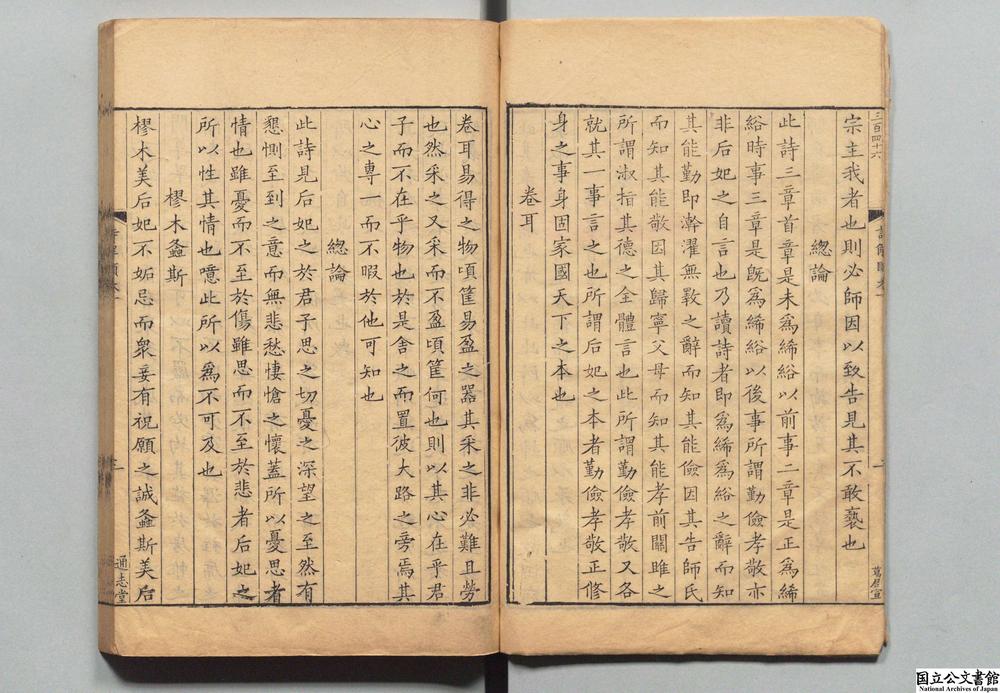 三百四十六
宗主我者也則必師因以致告見其不敢褻也
總論
此詩三章首章是未爲絺綌以前事二章是正爲絺
綌時事三章是旣爲絺綌以後事所謂勤儉孝敬亦
非后妃之自言也乃讀詩者即爲絺爲綌之辭而知
其能勤即澣濯無斁之辭而知其能儉因其告師氏
而知其能敬因其歸寧父母而知其能孝前關雎之
所謂淑指其德之全體言也此所謂勤儉孝敬又各
就其一事言之也所謂后妃之本者勤儉孝敬正修
身之事身固家國天下之本也
卷耳
卷耳易得之物頃筐易盈之器其采之非必難且勞
也然采之又采而不盈頃筐何也則以其心在乎君
子而不在乎物也於是舍之而置彼大路之旁焉其
心之專一而不暇於他可知也
總論
此詩見后妃之於君子思之切憂之深望之至然有
懇惻至到之意而無悲愁悽愴之懷蓋所以憂思者
情也雖憂而不至於傷雖思而不至於悲者后妃之
所以性其情也噫此所以爲不可及也
樛木螽斯
樛木美后妃不妬忌而衆妾有祝願之誠螽斯美后
通志堂